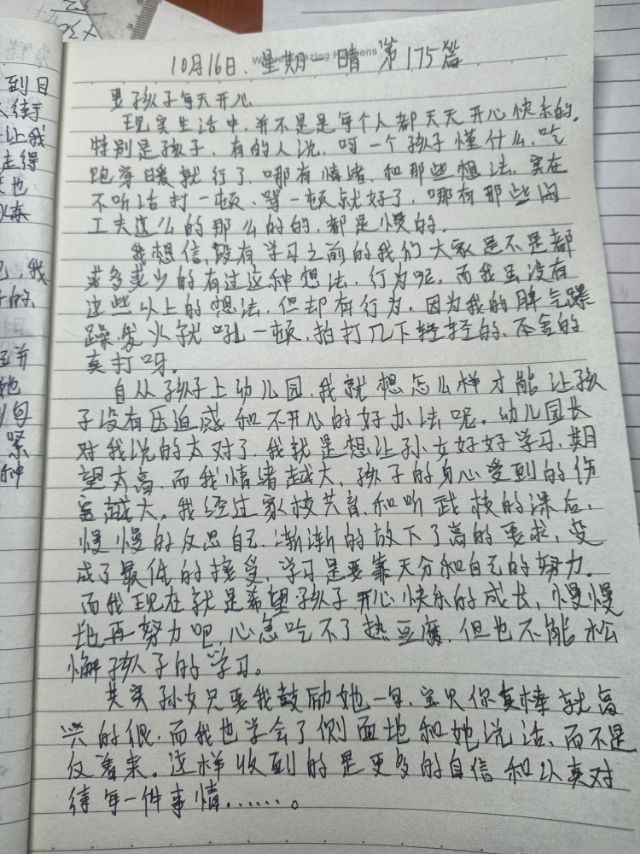 10月16日. 星期 晴 第175篇
孩子每天开心
现实生活中,并不是是每个人都天天开心快乐的,
特别是孩子,有的人说,呵一个孩子懂什么,吃
跑穿暖就行了,哪有情绪,和那些想法,实在
不听话打一顿、骂一顿就好了,哪有那些闲
工夫这么的那么的的,都是惯的。
我想信,没有学习之前的我们大家是不是都
或多或少的有过这种想法,行为呢,而我虽没有
这些以上的想法,但却有行为,因为我的脾气躁
躁发火就吼一顿,拍打几下轻轻的,不舍的
真打呀。
自从孩子上幼儿园,我就想怎么样才能让孩
子没有压迫感和不开心的好办法呢,幼儿园长
对我说的太对了,我就是想让孙女好好学习,期
望太高,而我情绪越大,孩子的身心受到的伤
害越大,我经过家校共育,和听学校的课后,
慢慢的反思自己,渐渐的放下了高的要求,变
成了最低的接受,学习是要靠天分和自己的努力。
而我现在就是希望孩子开心快乐的成长,慢慢
地再努力吧,心急吃不了热豆腐,但也不能松
懈孩子的学习。
其实孙女只要我鼓励她一句,宝贝你真棒就高
兴的很,而我也学会了侧面地和她说话,而不是
仅着来。这样收到的是更多的自信和认真对
待每一件事情……。
到目
让我
走得
也
我
的
并
她
句
紧
种